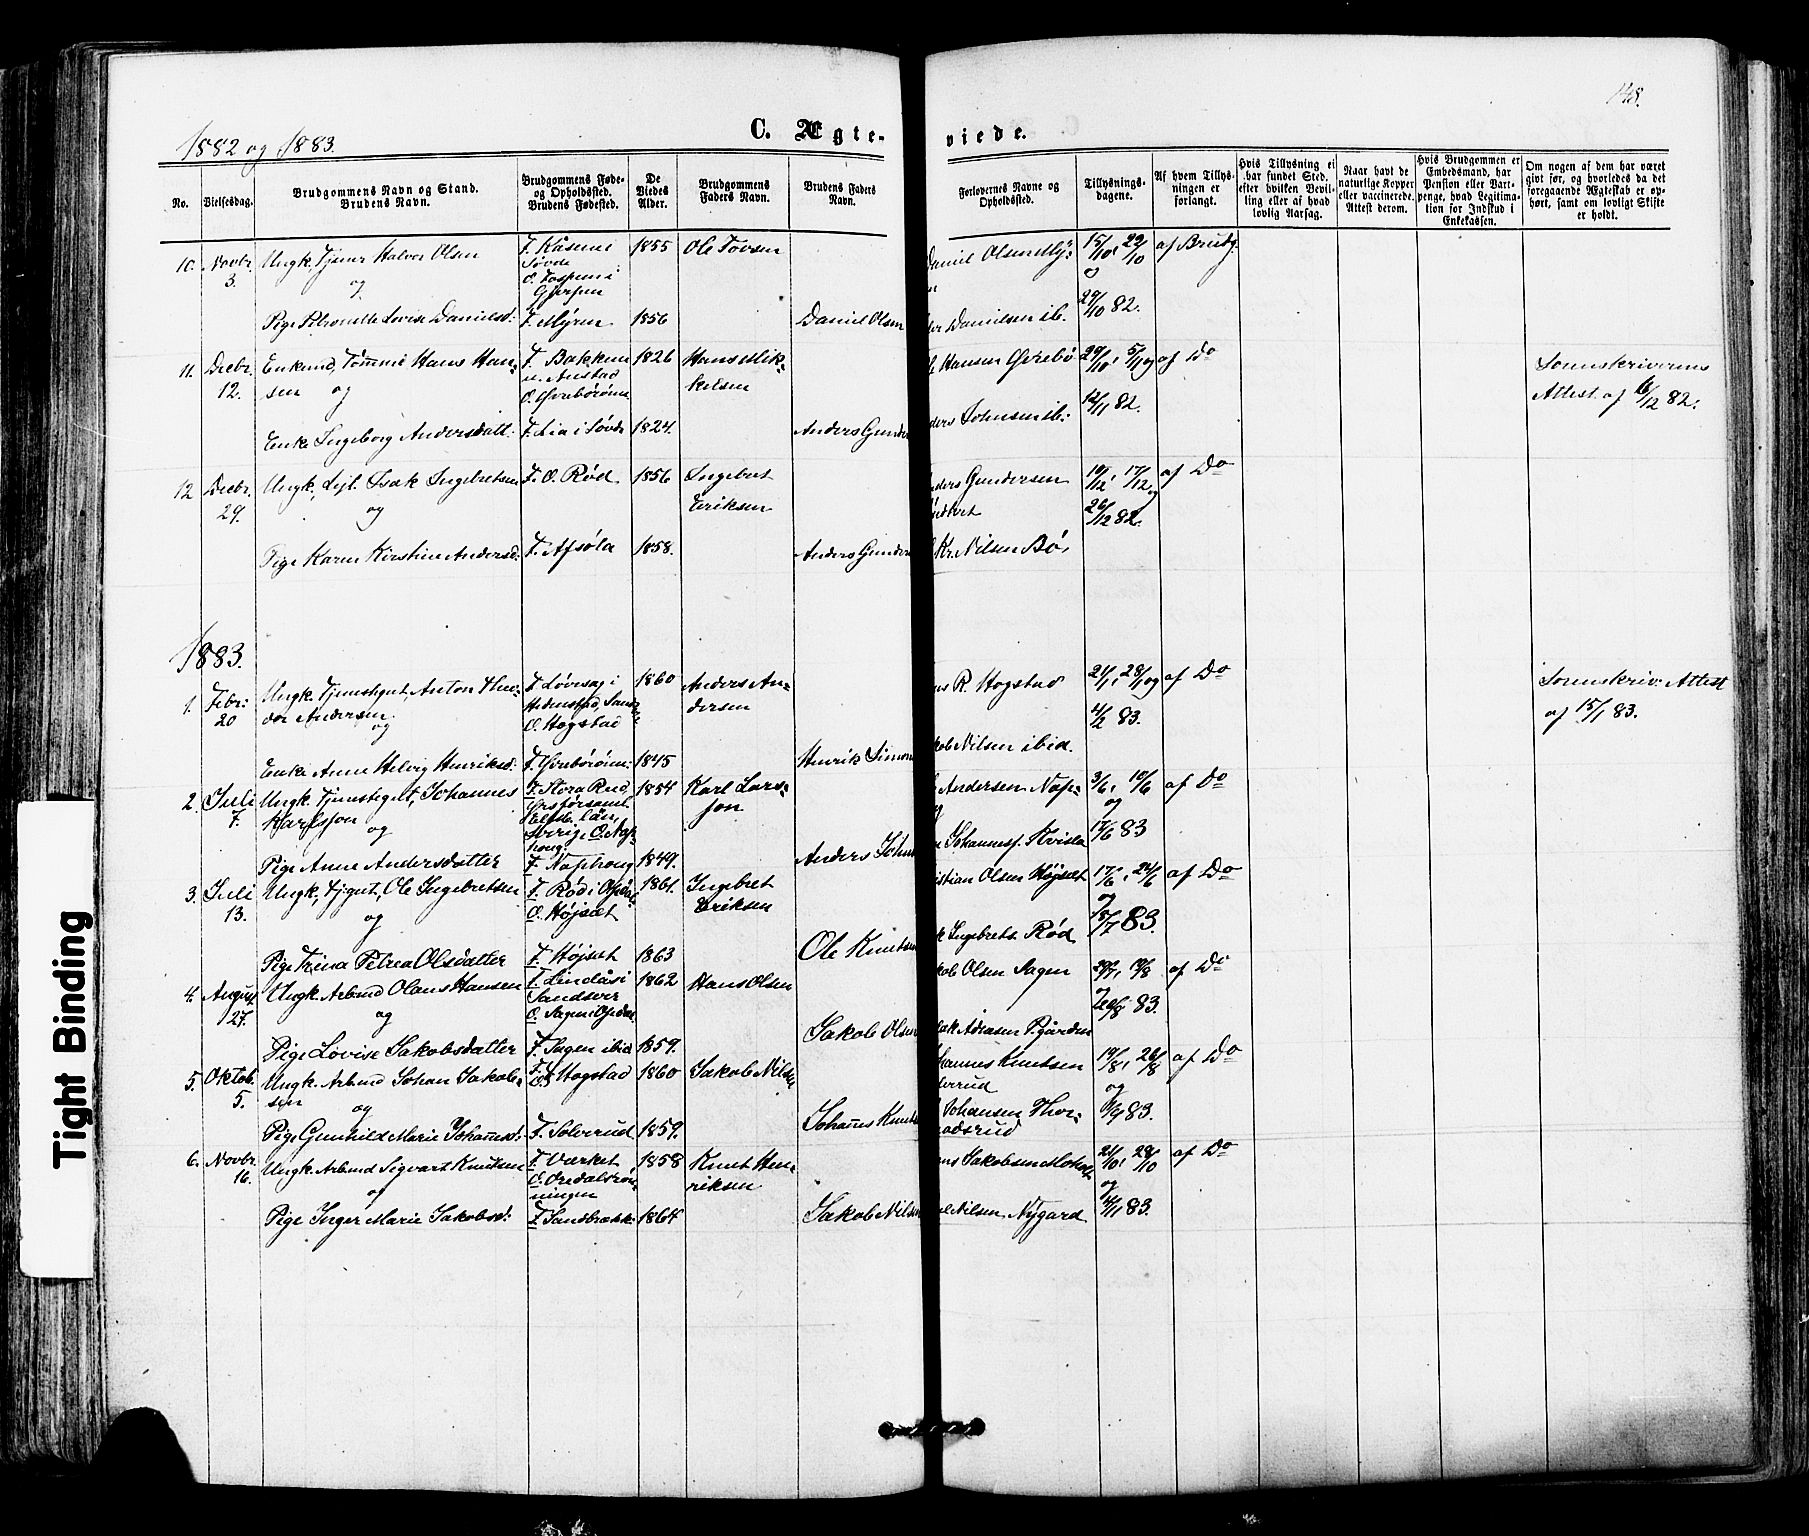 148.
1882 og 1883.
C. Ægte-
viede.
No.
Vielsesdag.
Brudgommens Navn og Stand.
Brudens Navn.
Brudgommens Føde- og Opholdssted.
Brudens Fødested.
De Viedes Alder.
Brudgommens Faders Navn.
Brudens Faders Navn.
Forlovernes Navne og Opholdssted.
Tillysnings-dagene.
Af hvem Tillysningen er forlangt.
Hvis Tillysning ei har fundet Sted, efter hvilken Bevilling eller af hvad lovlig Aarsag.
Naar havt de naturlige Kopper eller vaccinerede. Attest derom.
Hvis Brudgommen er Embedsmand, har Pension eller Vartpenge, hvad Legitimation for Indskud i Enkekassen.
Om nogen af dem har været gift før, og hvorledes da det foregaaende Ægteskab er ophørt, samt om lovligt Skifte er holdt.
10. Novbr. 3. Ungk. Tjener Halvor Olsen
og
F. Kåsene i Søvde
1855 Ole Tovsen
Daniel Olsen
15/10, 22/10 og 29/10 82.
af Brudg.
Pige Petronelle Lovise Danielsd:
F. Myren 1856 Daniel Olsen
Danielsen ib.
11. Decbr. 12. Enkemd, Tømme Hans Han-
sen og
F. Bakken
1826 Hans Mik-
kelsen
Hansen Øvrebø
29/10, 5/11 og 12/11 82.
af Do
Sorenskriverens
Attest af 6/12 82.
Enke Ingeborg Andersdatt:
F. Lia i Søvde 1824. Anders Gunder
Johnsen ib:
12 Decbr. 29. Ungk, Lejl. Isak Ingebretsen
og
F. O. Rød 1856 Ingebret
Eriksen
Gundersen
10/12, 17/12 og 26/12 82.
af Do
Pige Karen Kirstine Andersd:
F. Afsøla 1858. Anders Gunder
Kr. Nilsen Bö,
1883.
1. Febr: 20 Ungk. Tjenestegut, Anton Theo-
dor Andersen.
og
O. Hogstad
1860 Anders An-
dersen
R. Hogstad
21/1, 28/1 og 4/2 83.
af Do
Sorenskriv: Attest
af 15/1 83.
Enke Anne Helvig Henriksd:
1845 Henrik Simon
Nilsen ibid.
2. Juli 7. Ungk. Tjenestegut, Johannes
Karlsson
og
F. Stora Rud,
Sverige
1854 Karl Lars-
son
Andersen
3/6, 10/6 og 17/6 83
af Do
Pige Anne Andersdatter
1849. Anders John
Johannesf. Kvisla
3. Juli 13. Ungk, Tjgut, Ole Ingebretsen
og
F. Rød i
O. Højset
1861. Ingebret
Eriksen
Olsen Højset
17/6, 24/6 og 8/7 83.
af Do
Pige Trina Petrea Olsdatter
F. Højset 1863 Ole Knutsen
Ingebrets. Rød
4. August 27. Ungk Arbmd Olaus Hansen
og
F. Lindåsi
Sandsver
1862 Hans Olsen
Olsen Sagen
af Do
83.
Pige Lovise Jakobsdatter
F. Sagen ibid 1859. Jakob Olsen
5. Oktob. 5. Ungk. Arbmd Johan Jakob-
sen
og
Hogstad 1860 Jakob Nilsen
Knutsen
19/8, 26/8 og 2/9 83.
af Do
Pige Gunhild Marie Johannesd:
F. Solverud 1859. Johannes Knuts
Johansen Thor-
6. Novbr. 16. Ungk. Arbmd Sigvart Knutsen
og
F. Værket
1858 Knut Hen-
riksen
Jakobsen
21/10, 28/10 og 4/11 83.
af Do
Pige Inger Marie Jakobsd:
F. Sandbrekk 1864. Jakob Nilsen
Nilsen Nygard
Tight Binding